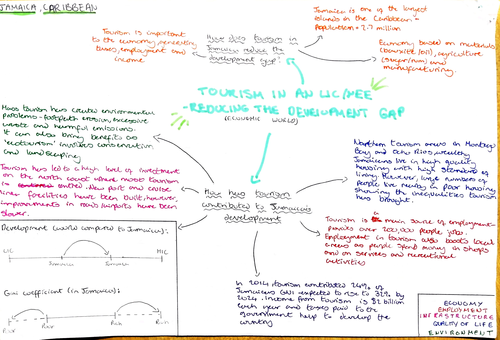 JAMAICA, CARIBBEAN
Tourism is important
to the economy, generating
taxes, employment and
income
How does tourism in
Jamaica reduce the
development gap?
Jamaica is one of the largest
islands in the Caribbean -
Population = 2.7 million
Economy based on materials
(bauxite/oil), agriculture
(sugar/rum) and
manufacturing.
TOURISM IN AN LIC/NEE
- REDUCING THE DEVELOPMENT GAP
(ECONOMIC WORLD)
Mass tourism has created environmental
problems - footpath erosion, excessive
waste and harmful emissions.
It can also bring benefits as
'ecotourism' involves conservation
and landscaping
Tourism has led to a high level of investment
on the north coast where most tourism
is centred. New port and cruise
liner facilities have been built, however,
improvements in roads, airports have been
slower.
How has tourism
contributed to Jamaica's
development
Northern tourism areas in Montego
Bay and Ocho Rios wealthy
Jamaicans live in high quality
housing with high standard of
living. However, large numbers of
people live nearby in poor housing
showing the inequalities tourism
has brought.
Tourism is main source of employment -
provides over 200,000 people jobs.
Employment in tourism also boosts local
areas as people spend money in shops
and on services and recreational
activities
In 2014 tourism contributed 24% of
Jamaica's GNI expected to rise to 32% by
2024. Income from tourism is $2 billion
each year and taxes paid to the
government help to develop the
country
Development (world compared to Jamaica):
LIC
HIC
Jamaica
Gini coefficient (in Jamaica):
Poor
Rich
Rich
ECONOMY
EMPLOYMENT
INFRASTRUCTURE
QUALITY OF LIFE
ENVIRONMENT